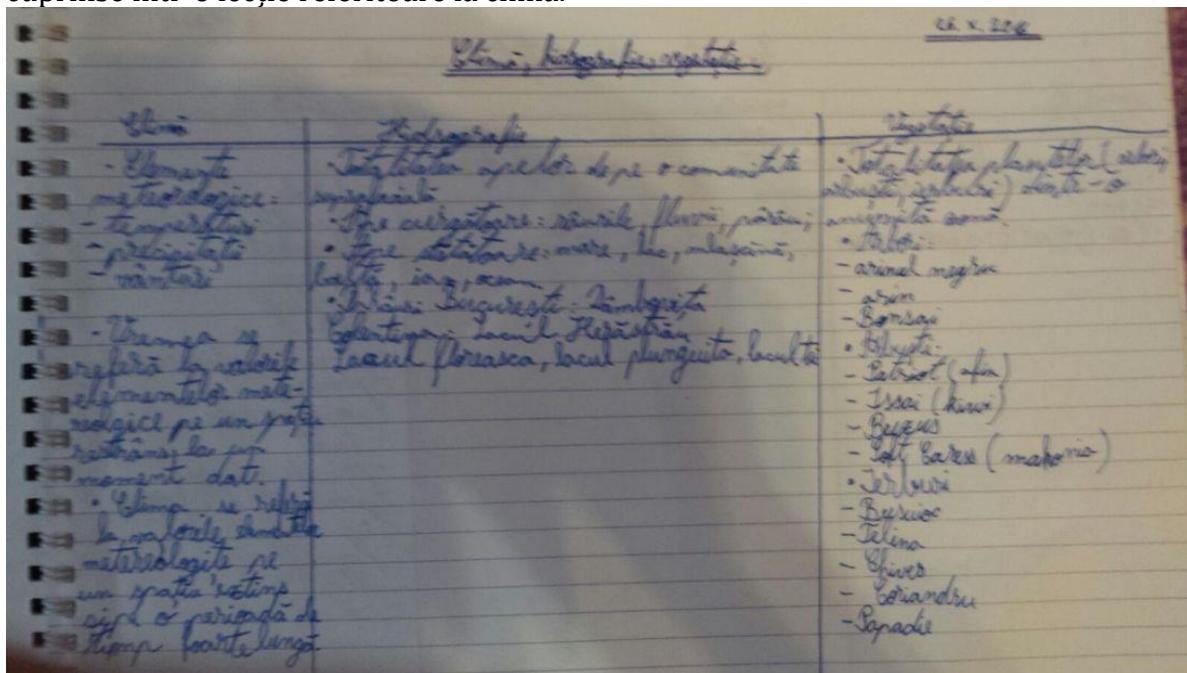 cuprinse într-o lecție referitoare la climă.
26. X. 2016
Climă, hidrografie, vegetație.
Climă
- Elemente
meteorologice:
- temperaturi
- precipitații
- vânturi
- Vremea se
referă la valorile
elementelor mete-
reologice pe un spațiu
restrâns, la un
moment dat.
• Clima se referă
la valorile
metereologite pe
un spațiu extins
și pe o perioadă de
timp foarte lungă.
Hidrografie
• Totalitatea apelor de pe o comunitate
• Ape curgătoare: râurile, fluvii, pârâu;
• Ape stătătoare: mare, lac, mlaștină,
baltă, ocean.
București: Dâmbovița
Colentina: Lacul Herăstrău
Lacul floreasca, lacul plumguita, lacul te
Vegetație
• Totalitatea plantelor (arbori,
arbuști, ierburi) dintr-o
anumită zonă.
• Arbori:
- arinul negru
- arin
- Bonsai
• Arbuști:
- Patriot (afin)
- Issai (kiwi)
- Buxus
- Soft Caress (mahonia)
• Ierburi
- Busuioc
- Telina
- Chives
- Coriandru
- Papadie